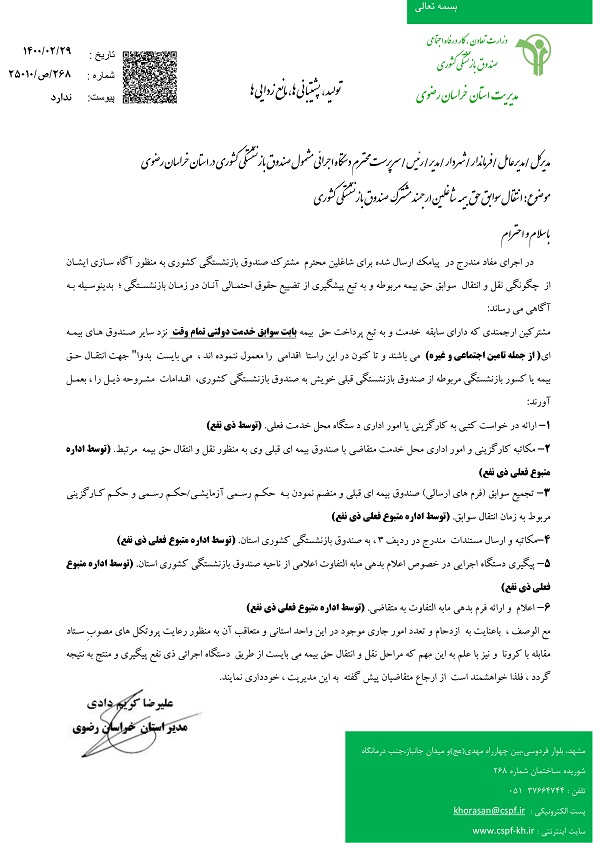 بسمه تعالی
وزارت تعاون، کار و رفاه اجتماعی
صندوق بازنشستگی کشوری
مدیریت استان خراسان رضوی
تاریخ : ۱۴۰۰/۰۲/۲۹
شماره : ۲۶۸/ص/۲۵۰۱۰
پیوست: ندارد
تولید، پشتیبانی ها، مانع زدایی ها
مدیرکل / مدیرعامل / فرماندار / شهردار / مدیر / رئیس / سرپرست محترم دستگاه اجرائی مشمول صندوق بازنشستگی کشوری در استان خراسان رضوی
موضوع: انتقال سوابق حق بیمه شاغلین ارجمند مشترک صندوق بازنشستگی کشوری
باسلام و احترام
در اجرای مفاد مندرج در پیامک ارسال شده برای شاغلین محترم مشترک صندوق بازنشستگی کشوری به منظور آگاه سازی ایشان
از چگونگی نقل و انتقال سوابق حق بیمه مربوطه و به تبع پیشگیری از تضییع حقوق احتمالی آنان در زمان بازنشستگی ؛ بدینوسیله به
آگاهی می رساند:
مشترکین ارجمندی که دارای سابقه خدمت و به تبع پرداخت حق بیمه بابت سوابق خدمت دولتی تمام وقت نزد سایر صندوق های بیمه
ای( از جمله تامین اجتماعی و غیره) می باشند و تا کنون در این راستا اقدامی را معمول ننموده اند ، می بایست بدوا" جهت انتقال حق
بیمه یا کسور بازنشستگی مربوطه از صندوق بازنشستگی قبلی خویش به صندوق بازنشستگی کشوری، اقدامات مشروحه ذیل را ، بعمل
آورند:
۱- ارائه در خواست کتبی به کارگزینی یا امور اداری د ستگاه محل خدمت فعلی. (توسط ذی نفع)
۲- مکاتبه کارگزینی و امور اداری محل خدمت متقاضی با صندوق بیمه ای قبلی وی به منظور نقل و انتقال حق بیمه مرتبط. (توسط اداره
متبوع فعلی ذی نفع)
۳- تجمیع سوابق (فرم های ارسالی) صندوق بیمه ای قبلی و منضم نمودن به حکم رسمی آزمایشی/حکم رسمی و حکم کارگزینی
مربوط به زمان انتقال سوابق. (توسط اداره متبوع فعلی ذی نفع)
۴-مکاتبه و ارسال مستندات مندرج در ردیف ۳ ، به صندوق بازنشستگی کشوری استان. (توسط اداره متبوع فعلی ذی نفع)
۵- پیگیری دستگاه اجرایی در خصوص اعلام بدهی مابه التفاوت اعلامی از ناحیه صندوق بازنشستگی کشوری استان. (توسط اداره متبوع
فعلی ذی نفع)
۶- اعلام و ارائه فرم بدهی مابه التفاوت به متقاضی. (توسط اداره متبوع فعلی ذی نفع)
مع الوصف ، باعنایت به ازدحام و تعدد امور جاری موجود در این واحد استانی و متعاقب آن به منظور رعایت پروتکل های مصوب ستاد
مقابله با کرونا و نیز با علم به این مهم که مراحل نقل و انتقال حق بیمه می بایست از طریق دستگاه اجرائی ذی نفع پیگیری و منتج به نتیجه
گردد ، فلذا خواهشمند است از ارجاع متقاضیان پیش گفته به این مدیریت ، خودداری نمایند.
علیرضا کریم دادی
مدیر استان خراسان رضوی
مشهد، بلوار فردوسی،بین چهارراه مهدی(عج)و میدان جانباز،جنب درمانگاه
شوریده ،ساختمان شماره ۲۶۸
تلفن : ۳۷۶۶۴۷۴۴ ۰۵۱
پست الکترونیکی : khorasan@cspf.ir
سایت اینترنتی : www.cspf-kh.ir